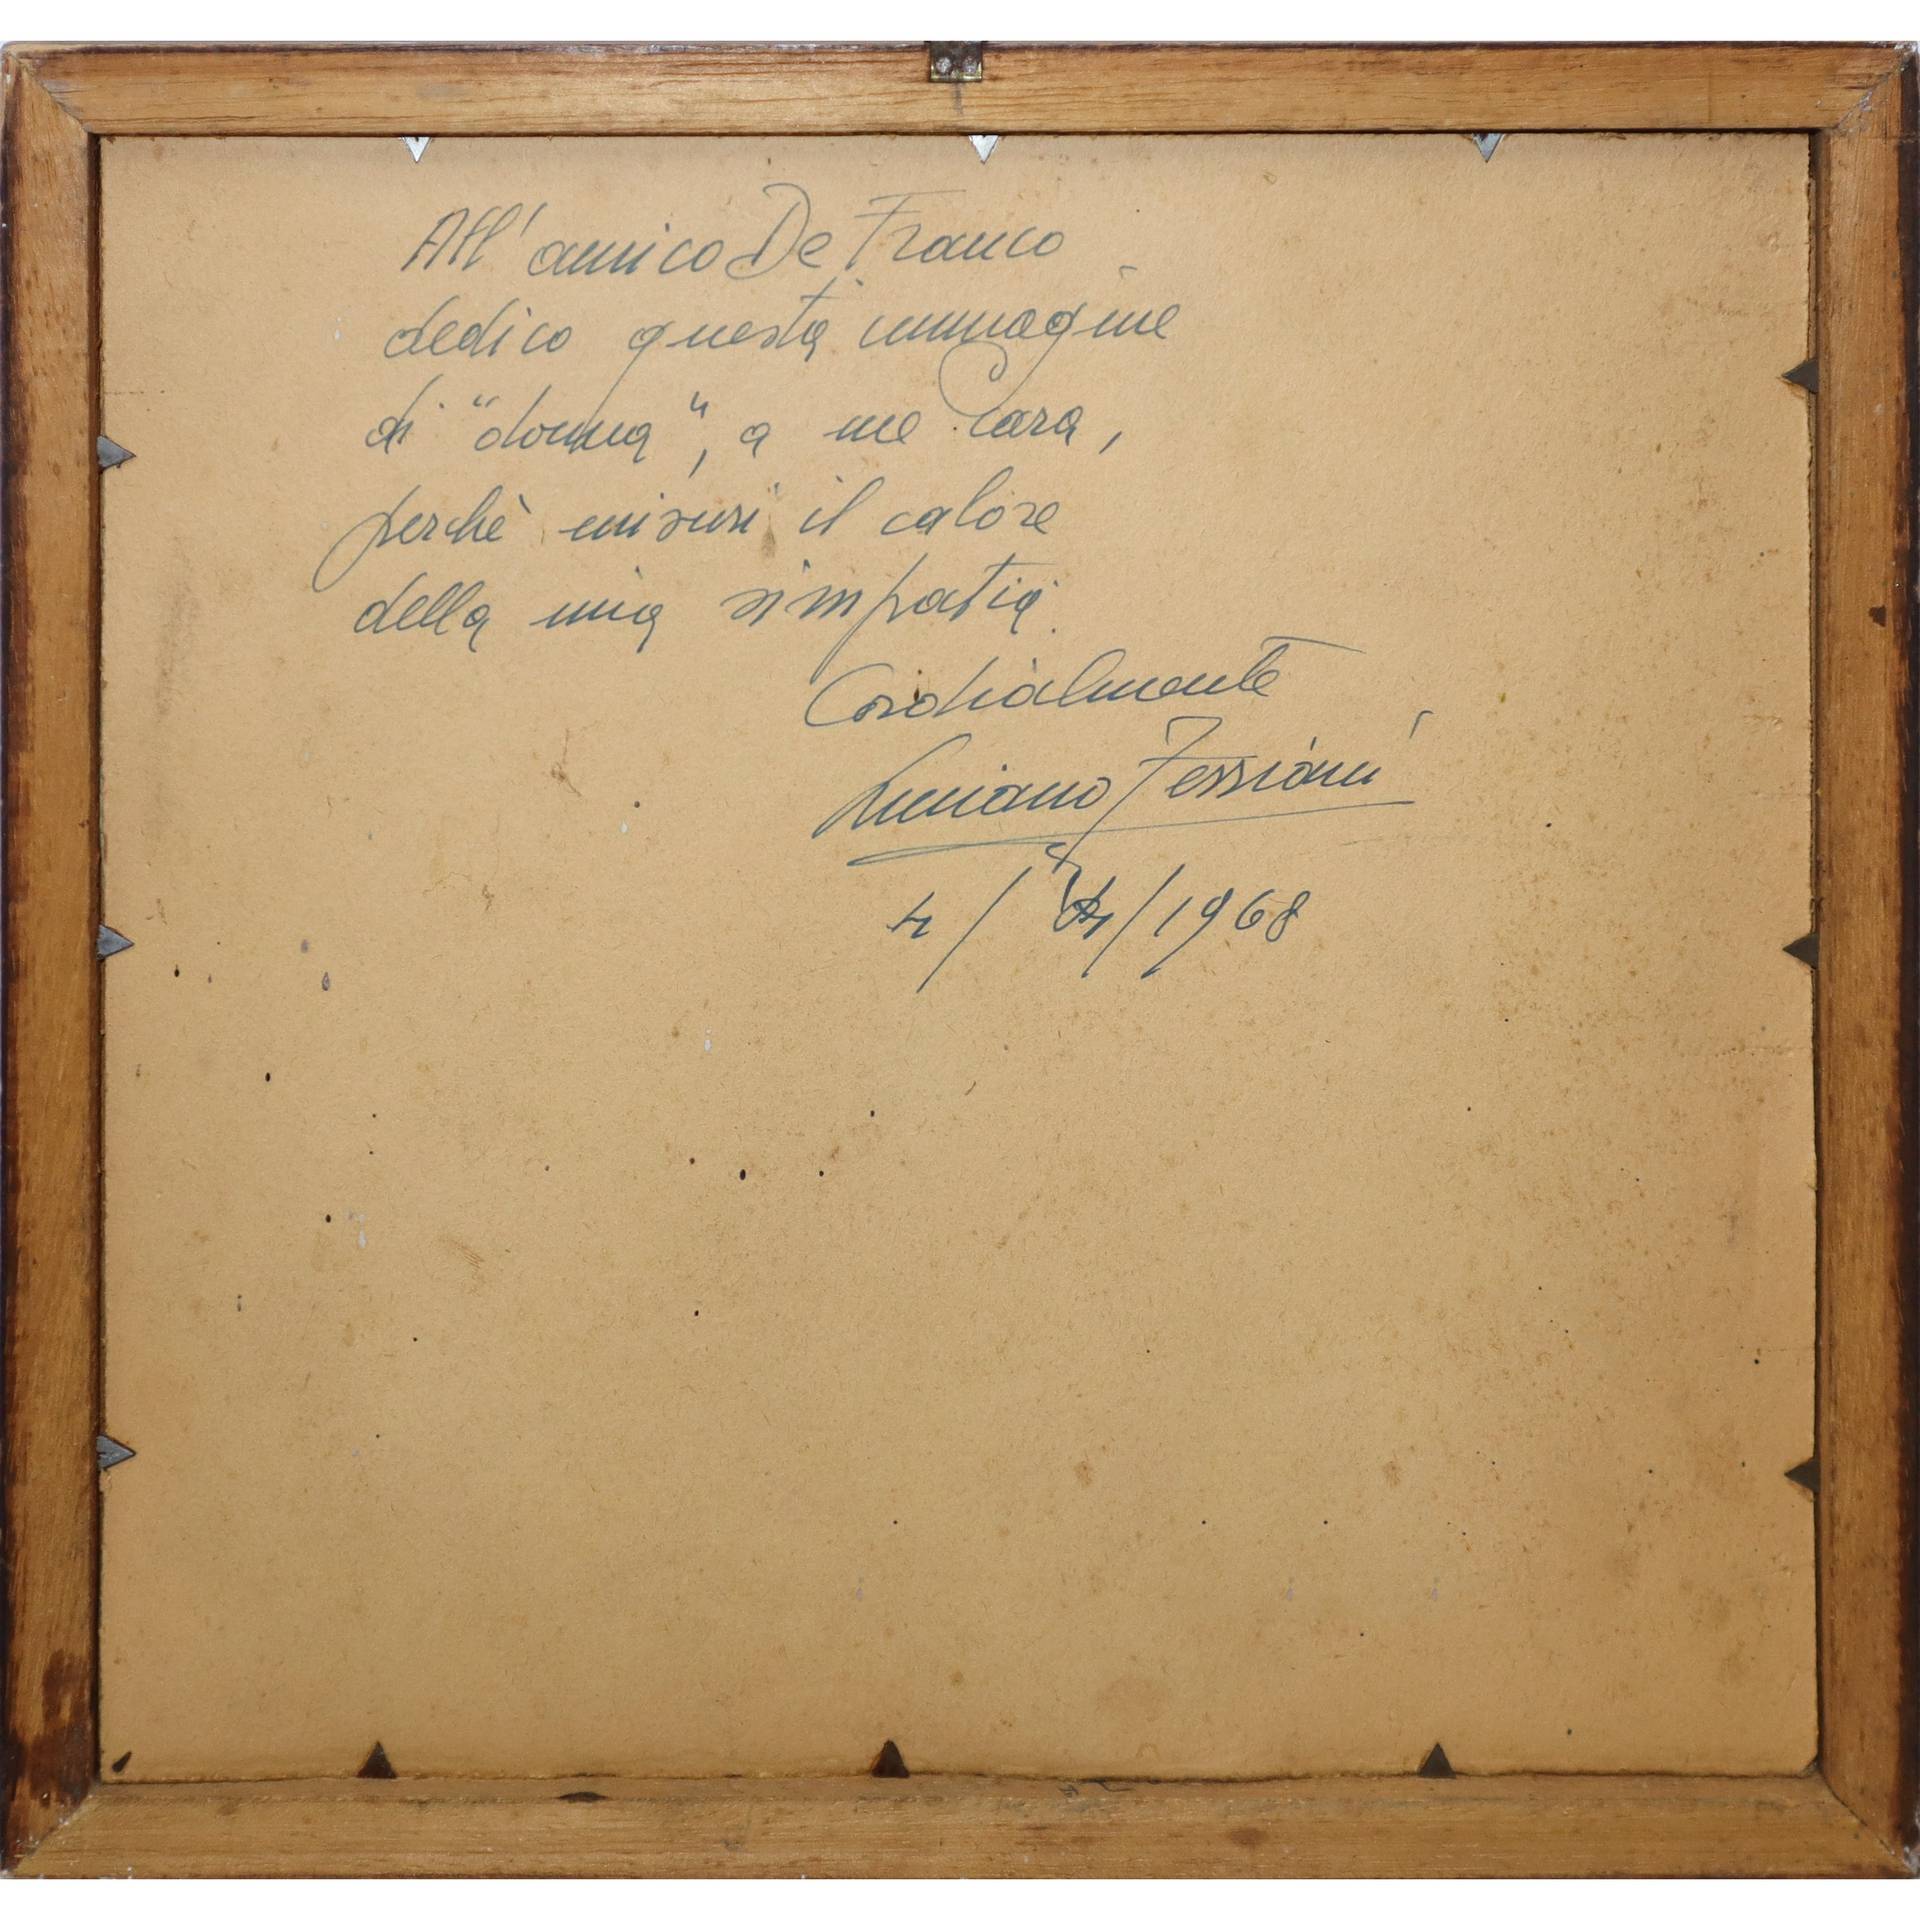 All' amico De Franco
dedico questa immagine
di "donna", a me cara,
perchè misuri il calore
della mia simpatia.
Cordialmente
Luciano
4/ /1968